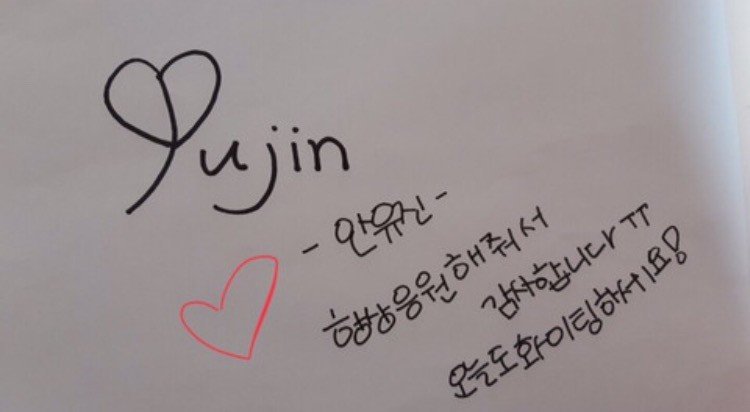 Yujin
- 안유진 -
항상응원해줘서
감사합니다 ㅠ
오늘도화이팅하세요!